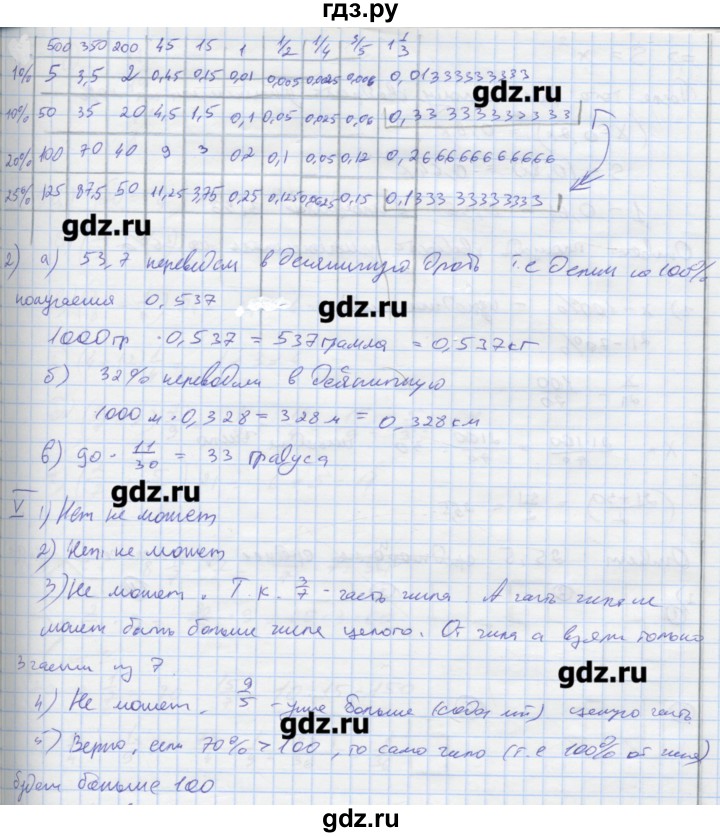 гдз.ру
500 350 200 45 15 1 1/2 1/4 3/5 1 1/3
1% 5 3,5 2 0,45 0,15 0,01 0,005 0,0025 0,006 0,01333333333
gdz.ru
10% 50 35 20 4,5 1,5 0,1 0,05 0,025 0,06 0,33 33333333333
20% 100 70 40 9 3 0,2 0,1 0,05 0,12 0,266666666666
25% 125 87,5 50 11,25 3,75 0,25 0,125 0,0625 0,15 0,1333 33333333
gdz.ru
2) а) 53,7 переведем в десятичную дробь т е делим на 100%
gdz.ru
получается 0,537
1000гр · 0,537 = 537 грамма = 0,537кг
gdz.ru
б) 32% переводим в десятичную
1000 м · 0,328 = 328 м = 0,328 км
в) 90 · 11/30 = 33 градуса
gdz.ru
V 1) Нет не может
2) Нет не может
gdz.ru
3) Не может. Т.к. 3/7 - часть числа А часть числа не
может быть больше числа целого. От числа а взяли только
3 части из 7.
gdz.ru
4) Не может. 9/5 - уже больше целую часть
gdz.ru
5) Верно, если 70% > 100, то само число (т.е 100% от числа)
будет больше 100
gdz.ru